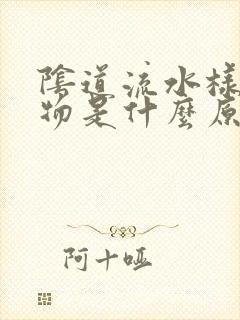 陰道流水樣
物是什麼原
阿十哑